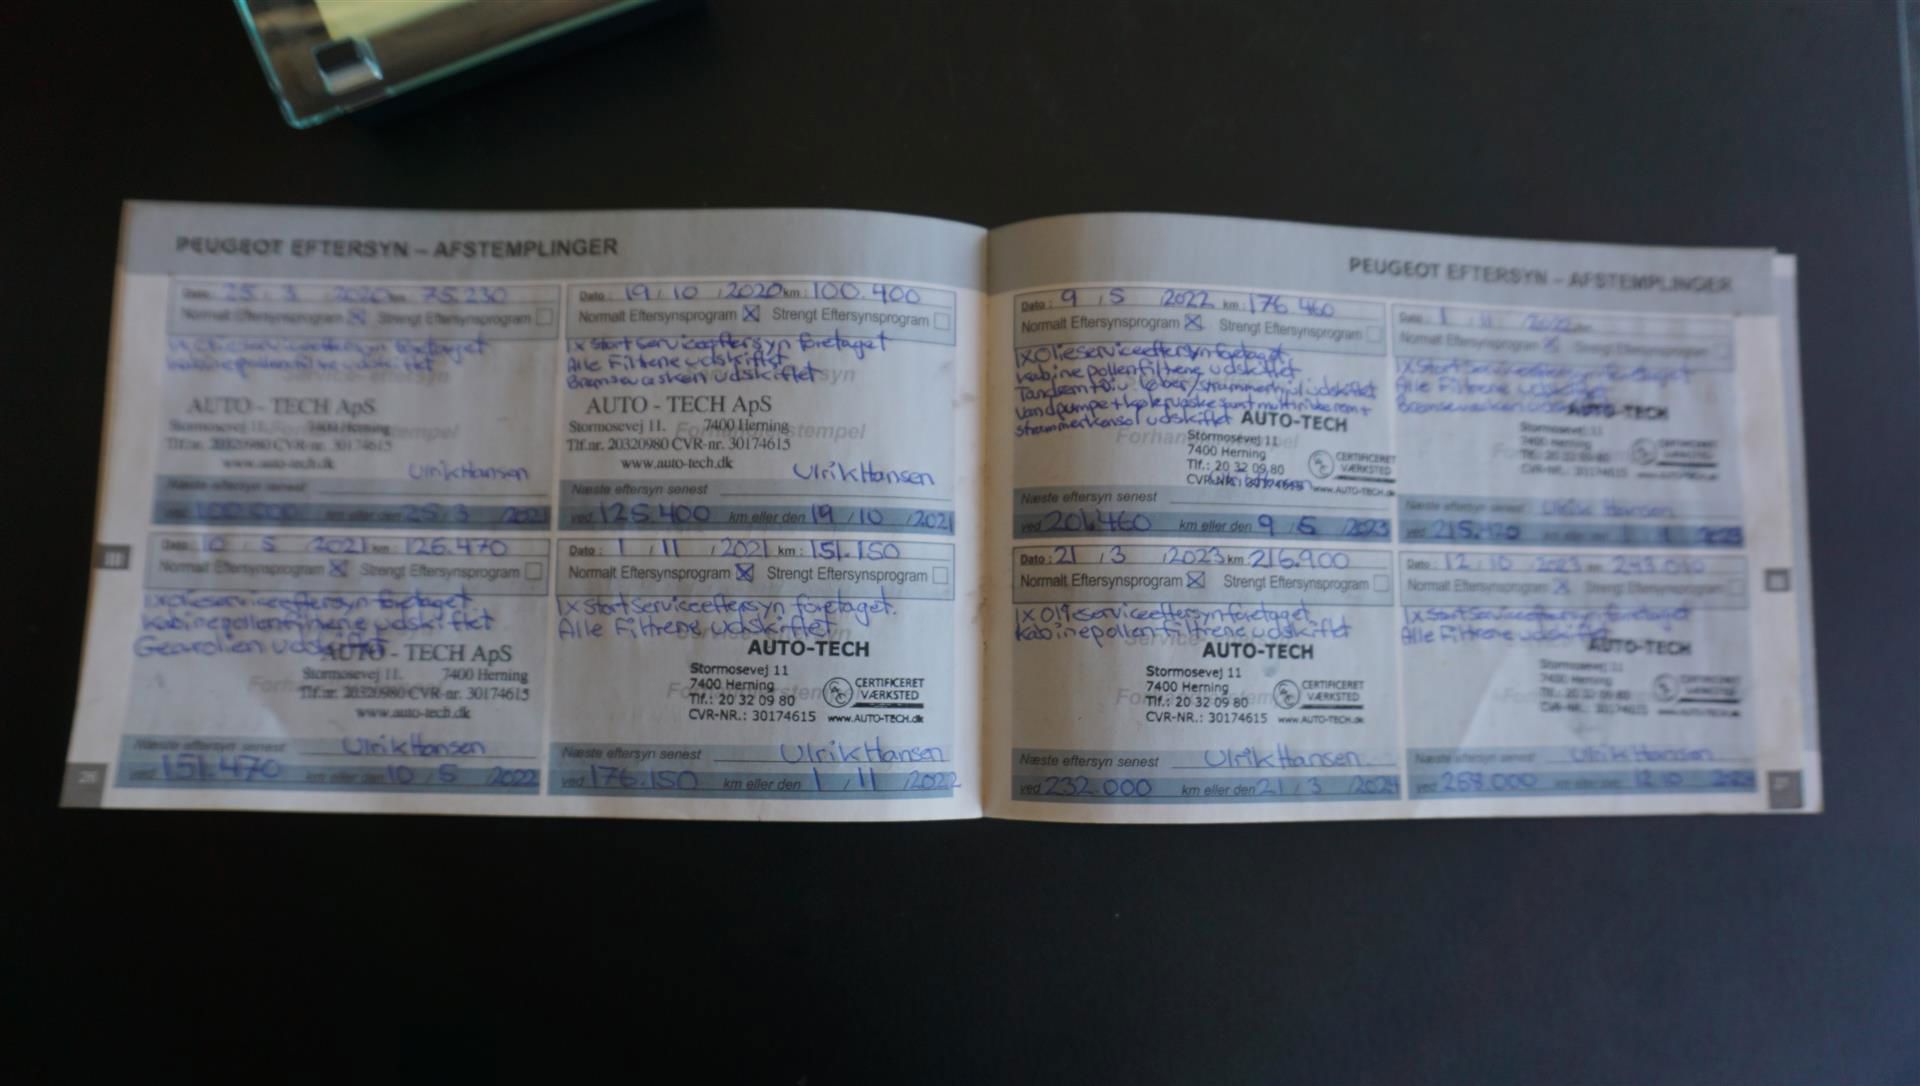 PEUGEOT EFTERSYN – AFSTEMPLINGER
Dato: 25 / 3 / 2020 km: 75.230
Normalt Eftersynsprogram Strengt Eftersynsprogram
1x olieserviceeftersyn foretaget
kabinepollenfiltrene udskiftet
AUTO - TECH ApS
Stormosevej 11. 7400 Herning
Tlf.nr. 20320980 CVR-nr. 30174615
www.auto-tech.dk
Ulrik Hansen
Næste eftersyn senest
ved 100.000 km eller den 25 / 3 / 2021
Dato: 19 / 10 / 2020 km: 100.400
Normalt Eftersynsprogram Strengt Eftersynsprogram
1x Stort serviceeftersyn foretaget
Alle Filtrene udskiftet
Bremsevæsken udskiftet
AUTO - TECH ApS
Stormosevej 11. 7400 Herning
Tlf.nr. 20320980 CVR-nr. 30174615
www.auto-tech.dk
Ulrik Hansen
Næste eftersyn senest
ved 125.400 km eller den 19 / 10 / 2021
Dato: 10 / 5 / 2021 km: 126.470
Normalt Eftersynsprogram Strengt Eftersynsprogram
1x olieserviceeftersyn foretaget
kabinepollenfiltrene udskiftet
Gearolien udskiftet
AUTO - TECH ApS
Stormosevej 11. 7400 Herning
Tlf.nr. 20320980 CVR-nr. 30174615
www.auto-tech.dk
Ulrik Hansen
Næste eftersyn senest
ved 151.470 km eller den 10 / 5 / 2022
Dato: 1 / 11 / 2021 km: 151.150
Normalt Eftersynsprogram Strengt Eftersynsprogram
1x Stort Serviceeftersyn foretaget.
Alle Filtrene udskiftet
AUTO-TECH
Stormosevej 11
7400 Herning
Tlf.: 20 32 09 80
CVR-NR.: 30174615
CERTIFICERET
VÆRKSTED
www.AUTO-TECH.dk
Ulrik Hansen
Næste eftersyn senest
ved 176.150 km eller den 1 / 11 / 2022
26
PEUGEOT EFTERSYN – AFSTEMPLINGER
Dato: 9 / 5 / 2022 km: 176.460
Normalt Eftersynsprogram Strengt Eftersynsprogram
1x Olieserviceeftersyn foretaget
kabinepollenfiltrene udskiftet
strammerkonsol udskiftet
AUTO-TECH
Stormosevej 11
7400 Herning
Tlf.: 20 32 09 80
CVR-NR.: 30174615
CERTIFICERET
VÆRKSTED
www.AUTO-TECH.dk
Ulrik Hansen
Næste eftersyn senest
ved 201.460 km eller den 9 / 5 / 2023
Dato: 1 / 11 / 2022
Normalt Eftersynsprogram Strengt Eftersynsprogram
1x Stort Serviceeftersyn foretaget
Alle Filtrene udskiftet
Bremsevæsken
AUTO-TECH
Stormosevej 11
7400 Herning
Tlf.: 20 32 09 80
CVR-NR.: 30174615
CERTIFICERET
VÆRKSTED
www.AUTO-TECH.dk
Ulrik Hansen
Næste eftersyn senest
ved km eller den
Dato: 21 / 3 / 2023 km: 216.900
Normalt Eftersynsprogram Strengt Eftersynsprogram
1x Olieserviceeftersyn foretaget
kabinepollenfiltrene udskiftet
AUTO-TECH
Stormosevej 11
7400 Herning
Tlf.: 20 32 09 80
CVR-NR.: 30174615
CERTIFICERET
VÆRKSTED
www.AUTO-TECH.dk
Ulrik Hansen
Næste eftersyn senest
ved 232.000 km eller den 21 / 3 / 2024
Dato: 12 / 10 / 2023 km:
Normalt Eftersynsprogram Strengt Eftersynsprogram
1x Stort Serviceeftersyn foretaget
Alle Filtrene udskiftet
AUTO-TECH
Stormosevej 11
7400 Herning
Tlf.: 20 32 09 80
CVR-NR.: 30174615
CERTIFICERET
VÆRKSTED
www.AUTO-TECH.dk
Ulrik Hansen
Næste eftersyn senest
ved 268.000 km eller den 12 10